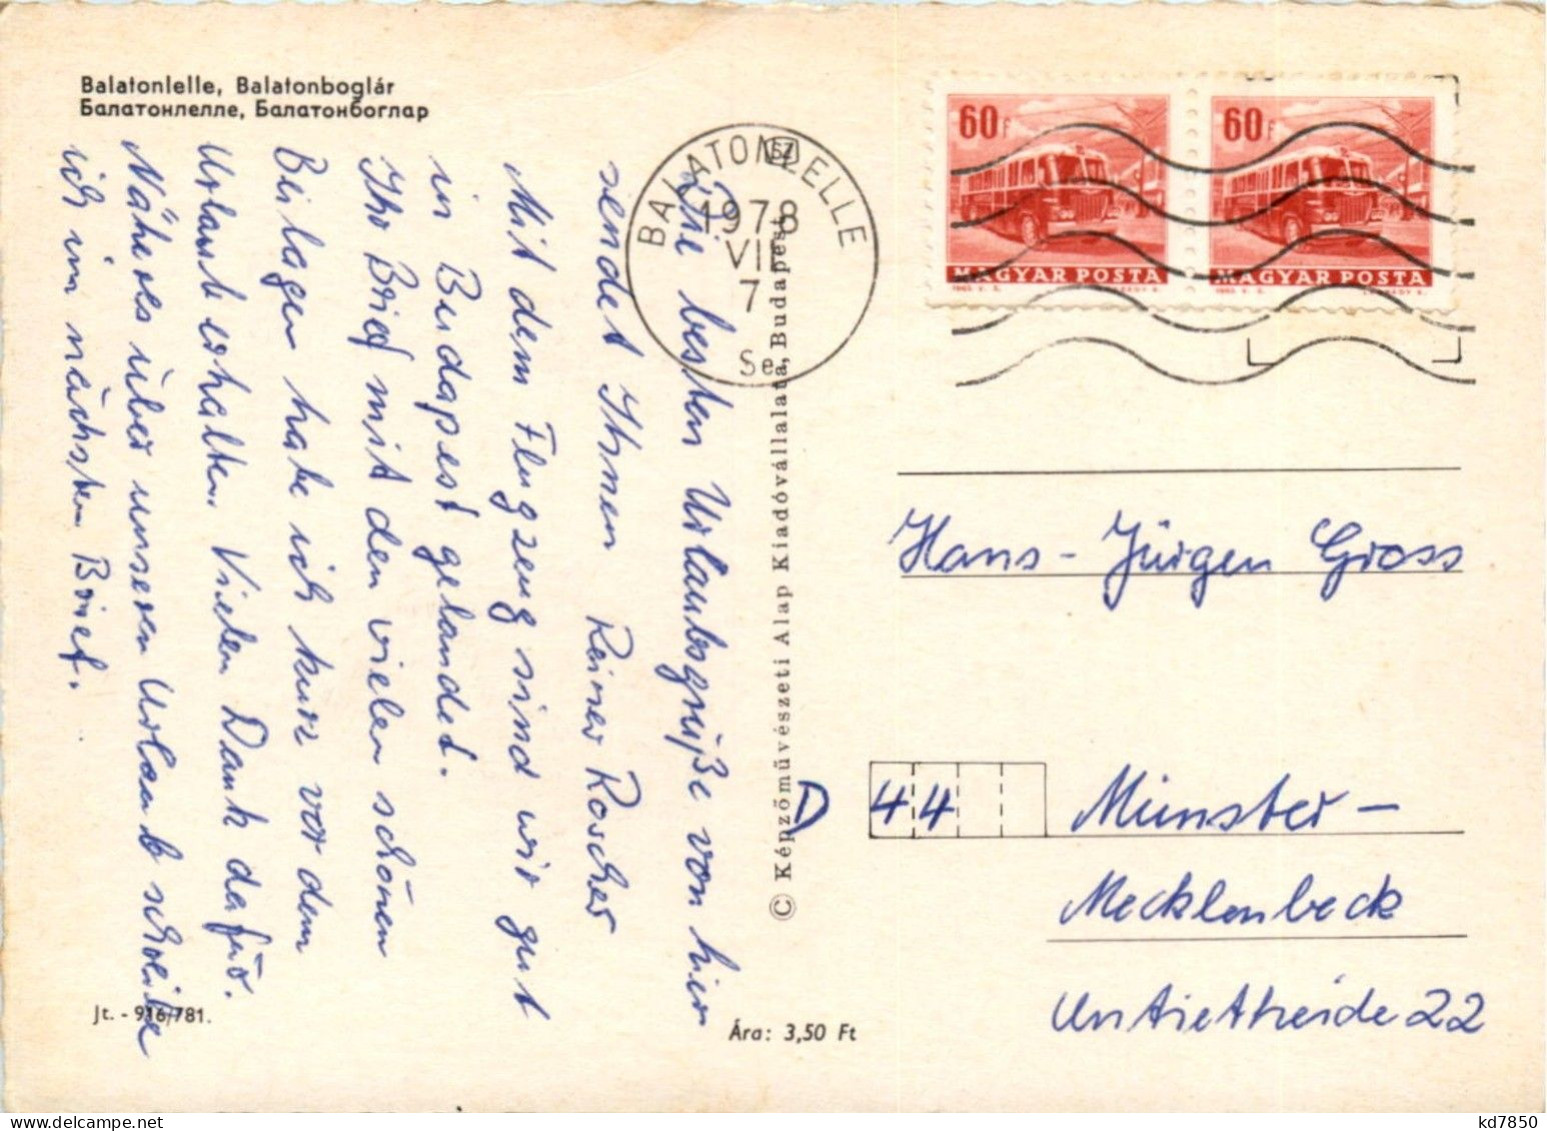 Balatonlelle, Balatonboglár
Балатонлелле, Балатонбоглар
BALATONLELLE
1978
VII
7
Se
60f
MAGYAR POSTA
60f
MAGYAR POSTA
Die besten Urlaubsgrüße von hier
sendet Ihnen Reiner Roscher
Mit dem Flugzeug sind wir gut
in Budapest gelandet.
Ihr Brief mit den vielen schönen
Beilagen habe ich kurz vor dem
Urlaub erhalten. Vielen Dank dafür.
Näheres über unseren Urlaub schreibe
ich im nächsten Brief.
© Képzőművészeti Alap Kiadóvállalata, Budapest
Hans-Jürgen Gross
D 44 Münster-
Mecklenbeck
22
Jt. - 916/781.
Ára: 3,50 Ft
kd7850